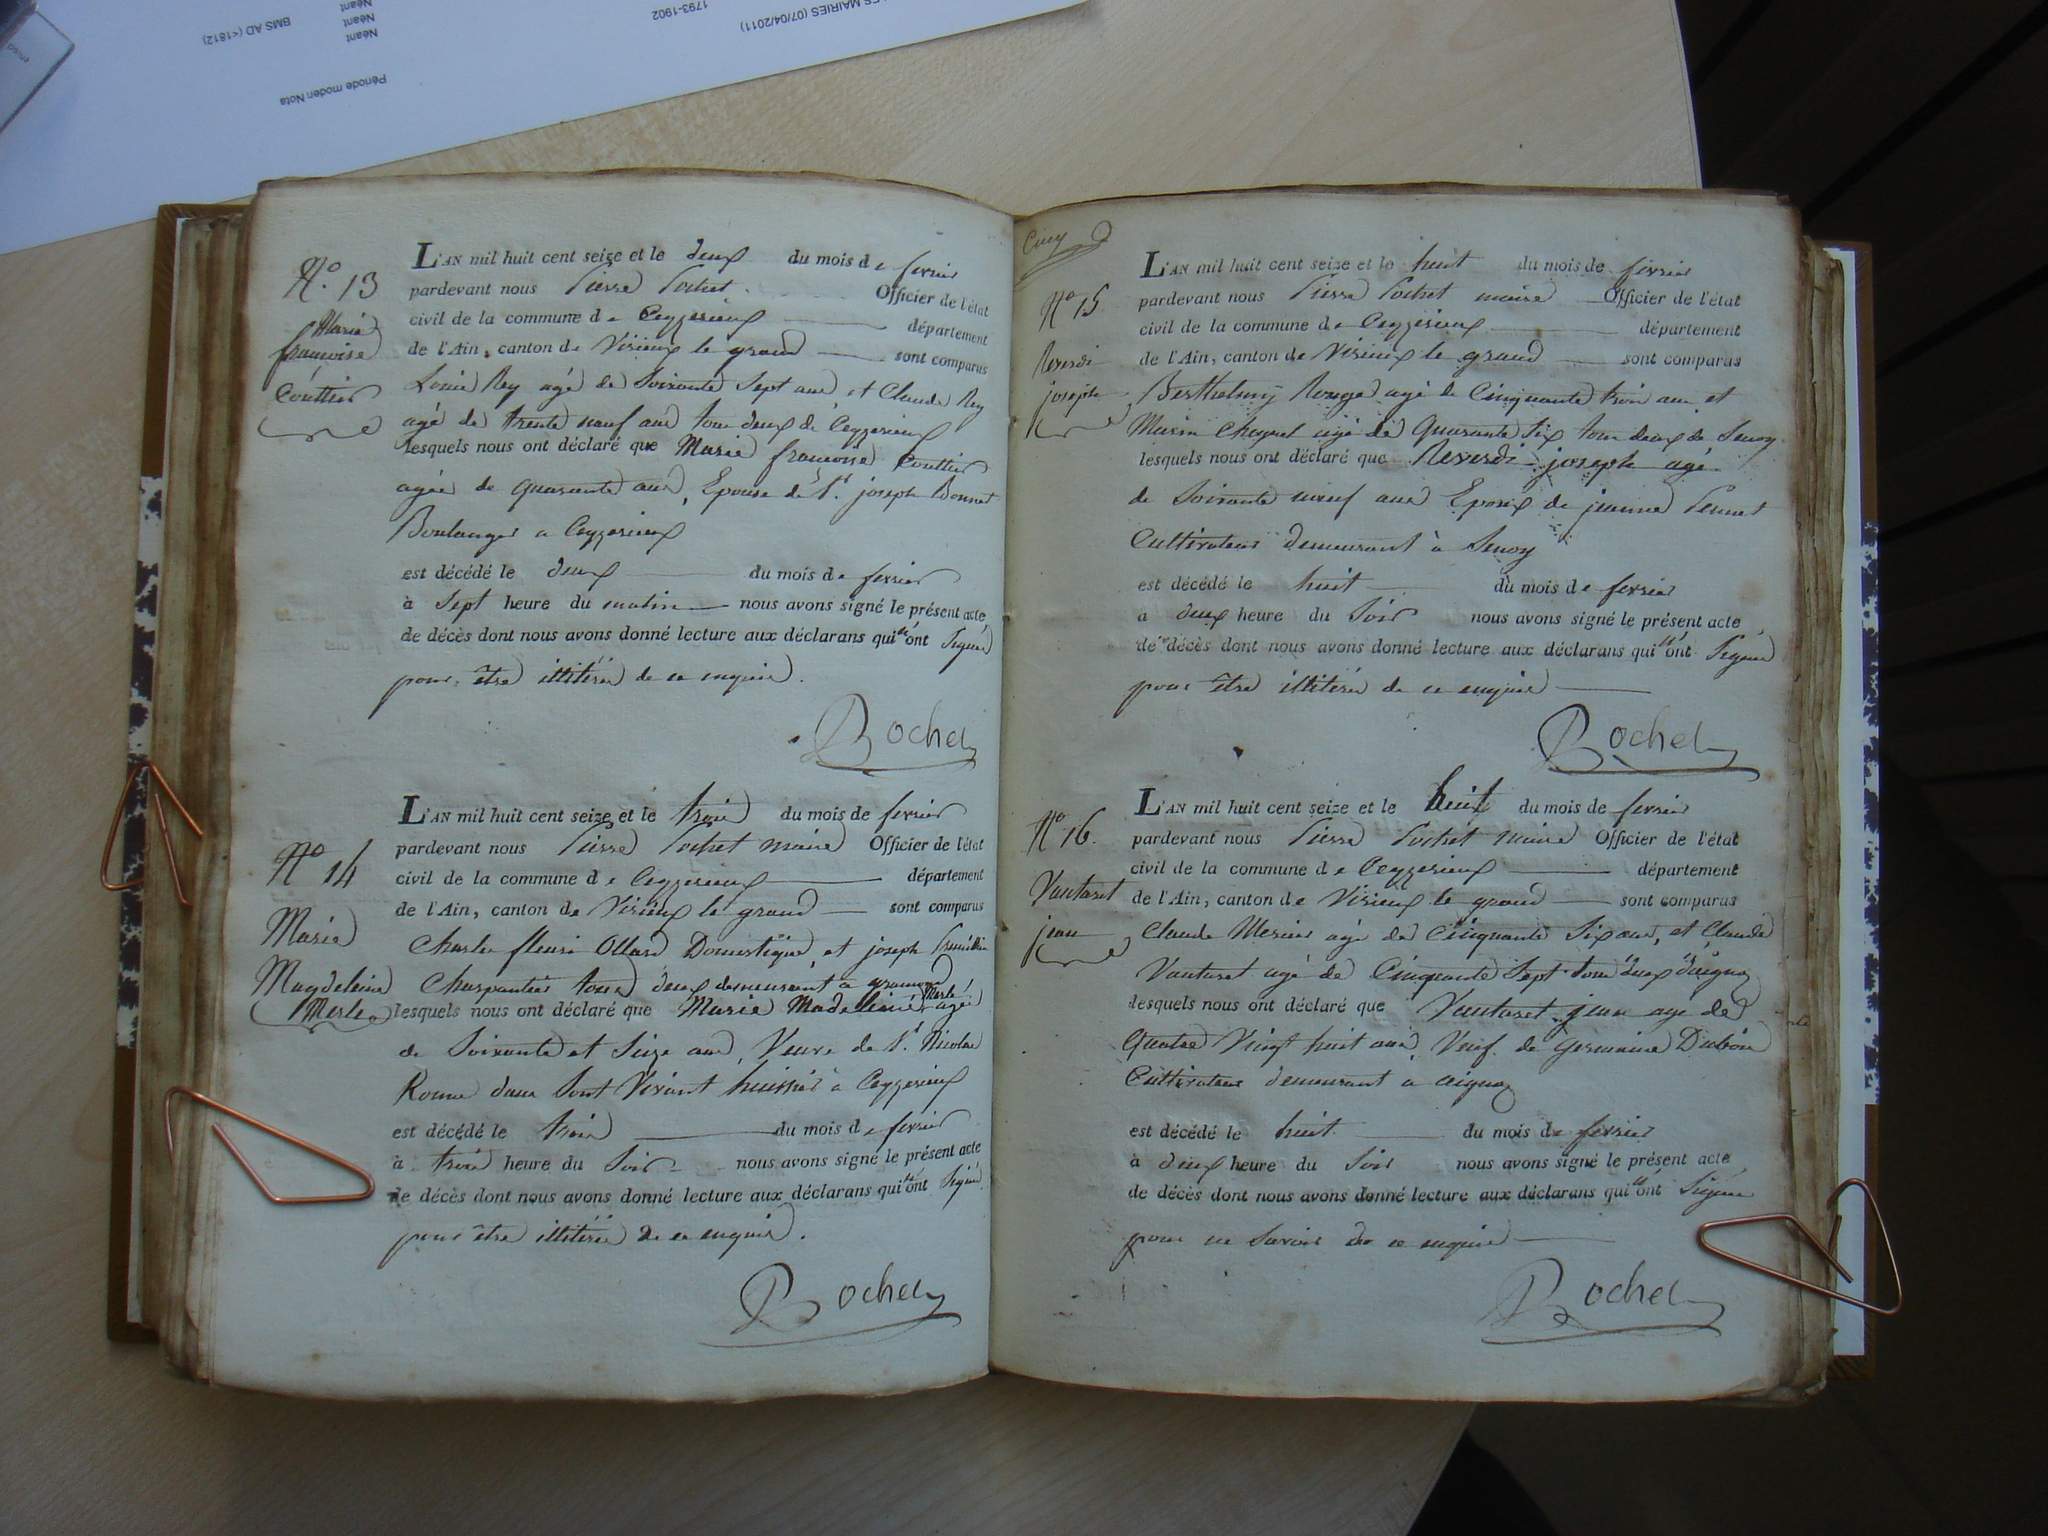 LES MAIRIES (07/04/2011)
1793-1902
BMS AD (<1812)
Néant
Néant
Néant
Période moder. Nota
N.o 13
Marie
françoise
Couttier
L'AN mil huit cent seize et le deux du mois de fevrier
pardevant nous Pierre Pochet . Officier de l'état
civil de la commune de Ceyzerieux département
de l'Ain, canton de Virieux le grand sont comparus
Louis Rey agé de Soixante Sept ans et Claude Rey
agé de trente neuf ans tous deux de Ceyzerieux
lesquels nous ont déclaré que Marie françoise Couttier
agée de quarante ans, Epouse de Sr. joseph Bonnet
Boulanger a Ceyzerieux
est décédé le deux du mois de fevrier
à Sept heure du matin nous avons signé le présent acte
de décès dont nous avons donné lecture aux déclarans qui n'ont Signé
pour être illitéré de ce enquis.
Rochet
No 14
Marie
Magdeleine
Merle
L'AN mil huit cent seize et le trois du mois de fevrier
pardevant nous Pierre Pochet maire Officier de l'état
civil de la commune de Ceyzerieux département
de l'Ain, canton de Virieux le grand sont comparus
Charles fleuri Ollard Domestique, et joseph
Charpentier tous deux demeurant a
lesquels nous ont déclaré que Marie Madelleine Merle agée
de Soixante et Seize ans, Veuve de Sr. Nicolas
Rome dans Sont Vivant huissié à Ceyzerieux
est décédé le trois du mois de fevrier
à trois heure du Soir nous avons signé le présent acte
de décès dont nous avons donné lecture aux déclarans qui n'ont Signé
pour être illitéré de ce enquis.
Rochet
Cinq
No 15
Reverdi
joseph
L'AN mil huit cent seize et le huit du mois de fevrier
pardevant nous Pierre Pochet maire Officier de l'état
civil de la commune de Ceyzerieux département
de l'Ain, canton de Virieux le grand sont comparus
Berthelmy Rouge agé de Cinquante trois ans et
Marin agé de Quarante Six tous deux de Senoy
lesquels nous ont déclaré que Reverdi joseph agé
de Soixante neuf ans Epoux de jeanne Pernet
Cultivateur demeurant à Senoy
est décédé le huit du mois de fevrier
a deux heure du Soir nous avons signé le présent acte
de décès dont nous avons donné lecture aux déclarans qui n'ont Signé
pour être illitéré de ce enquis
Rochet
No 16.
Vautaret
jean
L'AN mil huit cent seize et le huit du mois de fevrier
pardevant nous Pierre Pochet maire Officier de l'état
civil de la commune de Ceyzerieux département
de l'Ain, canton de Virieux le grand sont comparus
Claude Mercier agé de Cinquante Six ans, et Claude
Vautaret agé de Cinquante Sept tous deux d'aignoz
lesquels nous ont déclaré que Vautaret jean agé de
Quatre Vingt huit ans, Veuf de Germaine Dubois
Cultivateur demeurant a aignoz
est décédé le huit du mois de fevrier
à deux heure du Soir nous avons signé le présent acte
de décès dont nous avons donné lecture aux déclarans qui n'ont Signé
pour ne Savoir de ce enquis
Rochet